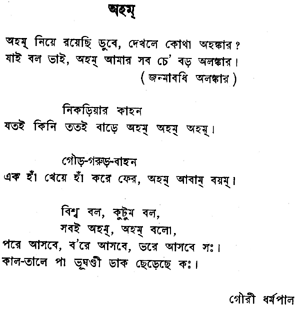 অহম্
অহম্ নিয়ে রয়েছি ডুবে, দেখলে কোথা অহঙ্কার?
যাই বল ভাই, অহম্ আমার সব চে' বড় অলঙ্কার।
( জন্মাবধি অলঙ্কার )
নিকড়িয়ার কাহন
যতই কিনি ততই বাড়ে অহম্ অহম্ অহম্।
গৌড়-গরুড়-বাহন
এক হাঁ খেয়ে হাঁ করে ফের, অহম্ আবাম্ বয়ম্।
বিশ্ব বল, কুটুম বল,
সবই অহম্, অহম্ বলো,
পরে আসবে, ব'রে আসবে, ভরে আসবে সঃ।
কাল-তালে পা ভূষণ্ডী ডাক ছেড়েছে কঃ।
গৌরী ধর্মপাল